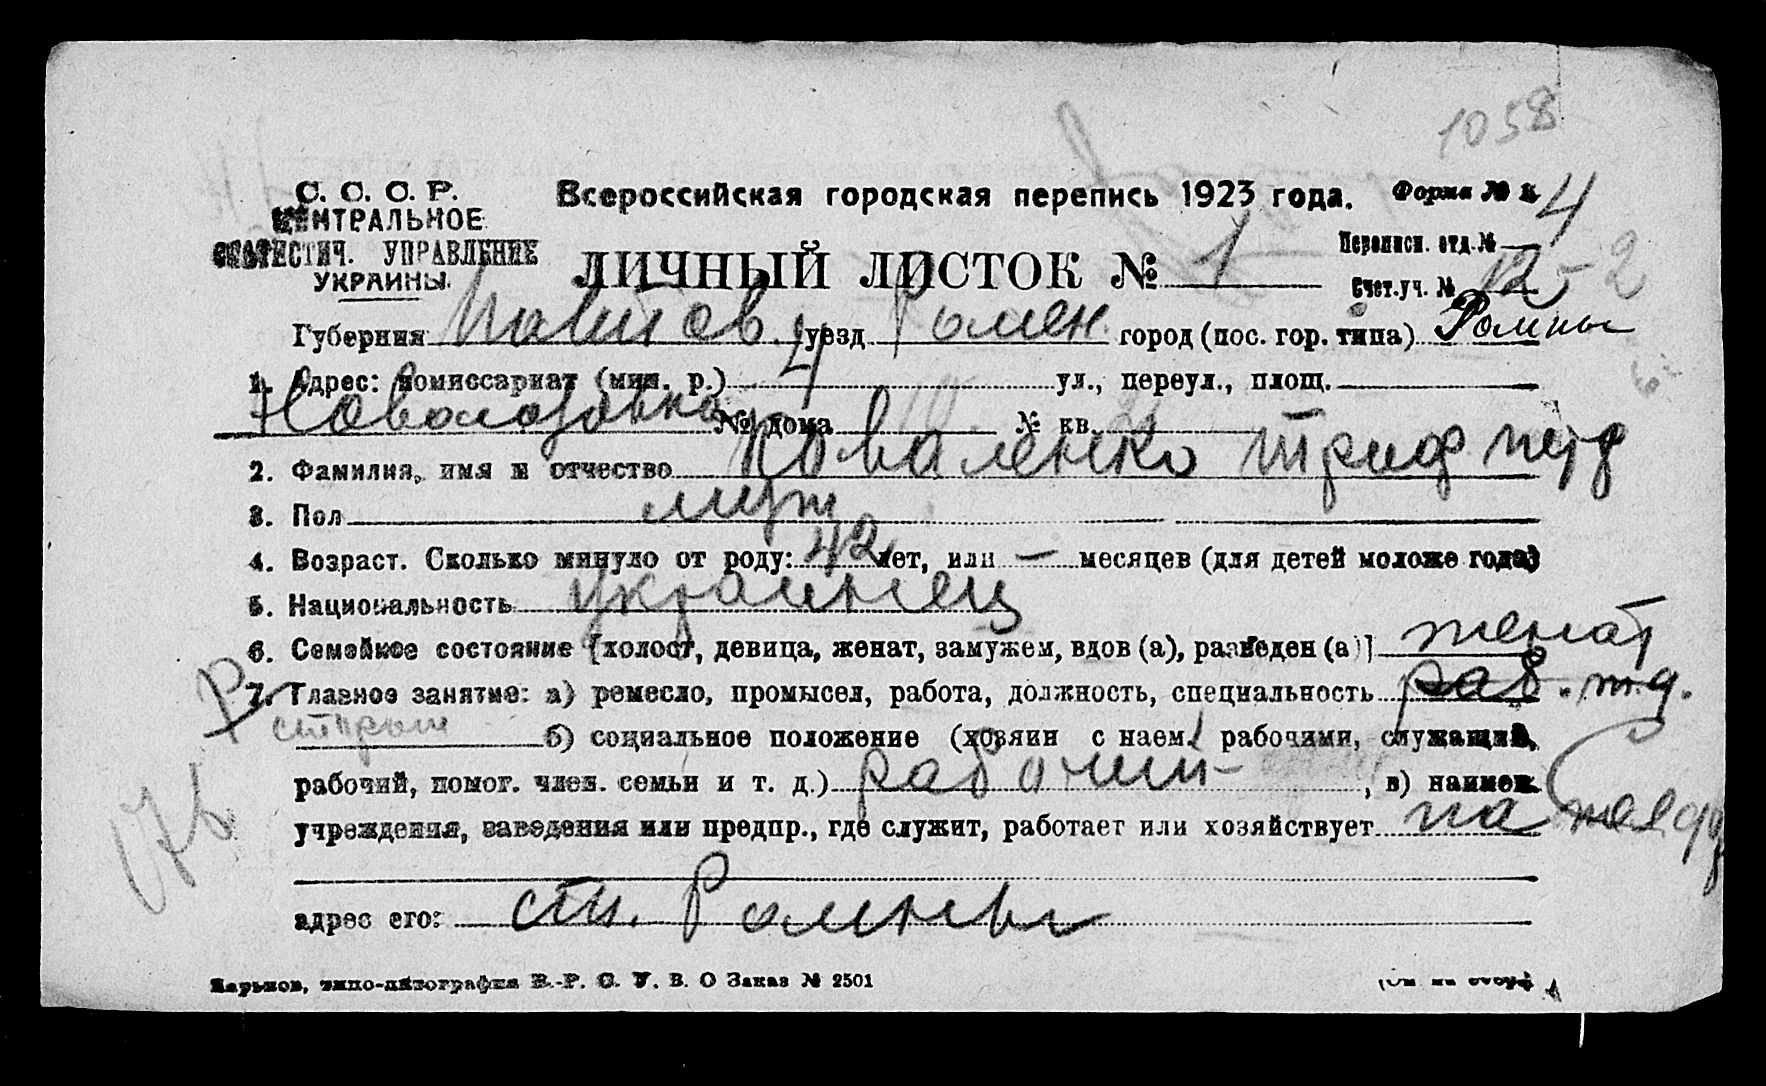 1058
С. С. С. Р.
ЦЕНТРАЛЬНОЕ
СТАТИСТИЧ. УПРАВЛЕНИЕ
УКРАИНЫ.
Всероссийская городская перепись 1923 года. Форма №
4
Переписн. отд. №
ЛИЧНЫЙ ЛИСТОК № 1
Счет.уч. № 12-2
Губерния Полтав. уезд Ромен. город (пос. гор. типа) Ромны
1. Адрес: комиссариат (мил. р.) 4 ул., переул., площ.
№ дома 10 № кв.
2. Фамилия, имя и отчество Коваленко Триф Петр
3. Пол муж
4. Возраст. Сколько минуло от роду: 42 лет, или — месяцев (для детей моложе года)
5. Национальность украинец
6. Семейное состояние [холост, девица, женат, замужем, вдов (а), разведен (а)] женат
7. Главное занятие: а) ремесло, промысел, работа, должность, специальность раб.
б) социальное положение (хозяин с наем. рабочими, служащий,
рабочий, помог. член. семьи и т. д.) рабочий , в) наимен.
учреждения, заведения или предпр., где служит, работает или хозяйствует на
адрес его: ст. Ромны
Харьков, типо-литография В.-Р. С. У. В. О Заказ № 2501